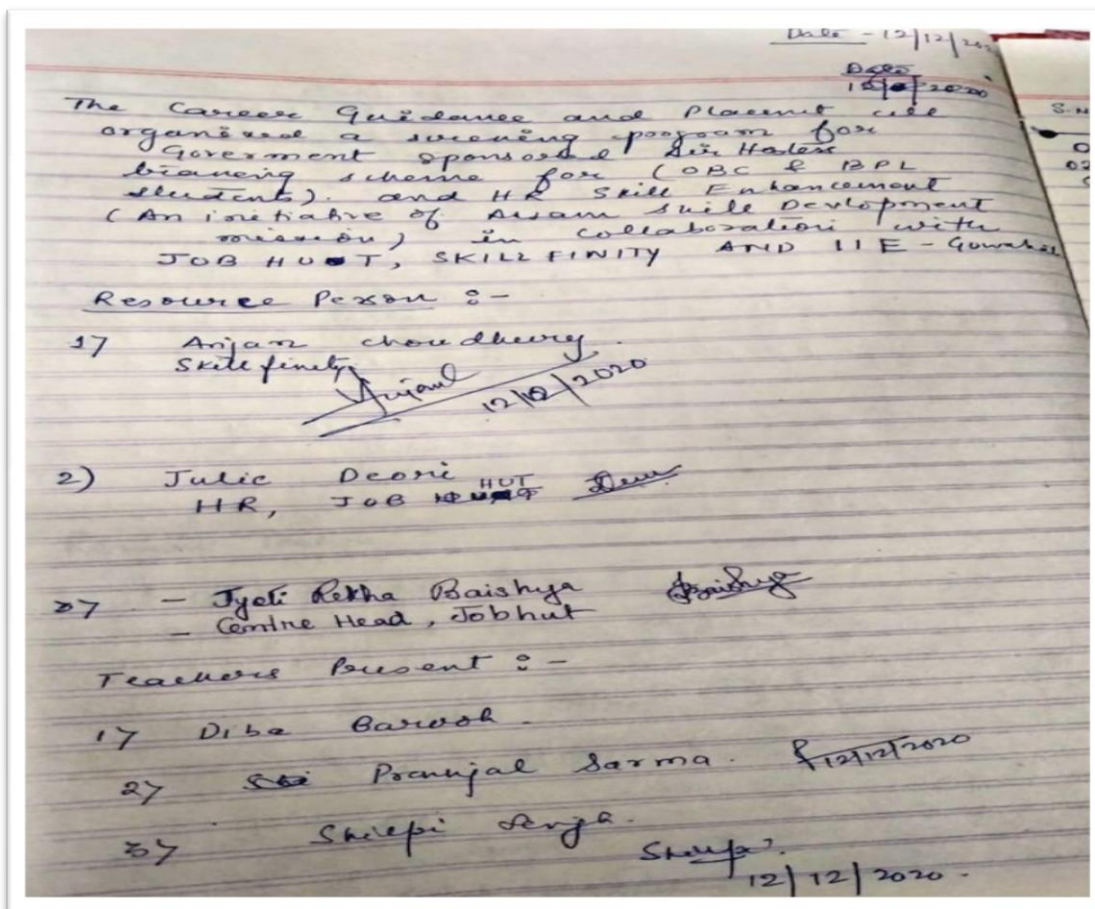 Date - 12/12/202
Date
2020
The Career Guidance and Placemnt cell
organised a screening program for
Goverment sponsored Air Hostess
training scheme for (OBC & BPL
students). and HR Skill Enhancement
(An initiative of Assam Skill Devlopment
mission) in collaboration with
JOB HUT, SKILL FINITY AND IIE - Guwahati
Resource Person :-
1) Anjan choudhury.
Skill finity
Anjan
12/12/2020
2) Julie Deori
HR, JOB HUT
3) - Jyoti Rekha Baishya Baishya
- Centre Head, Jobhut
Teachers Present :-
1) Diba Barooh.
2) Prannjal Sarma. 12/12/2020
3) Shilepi
12/12/2020.
S.N
0
02